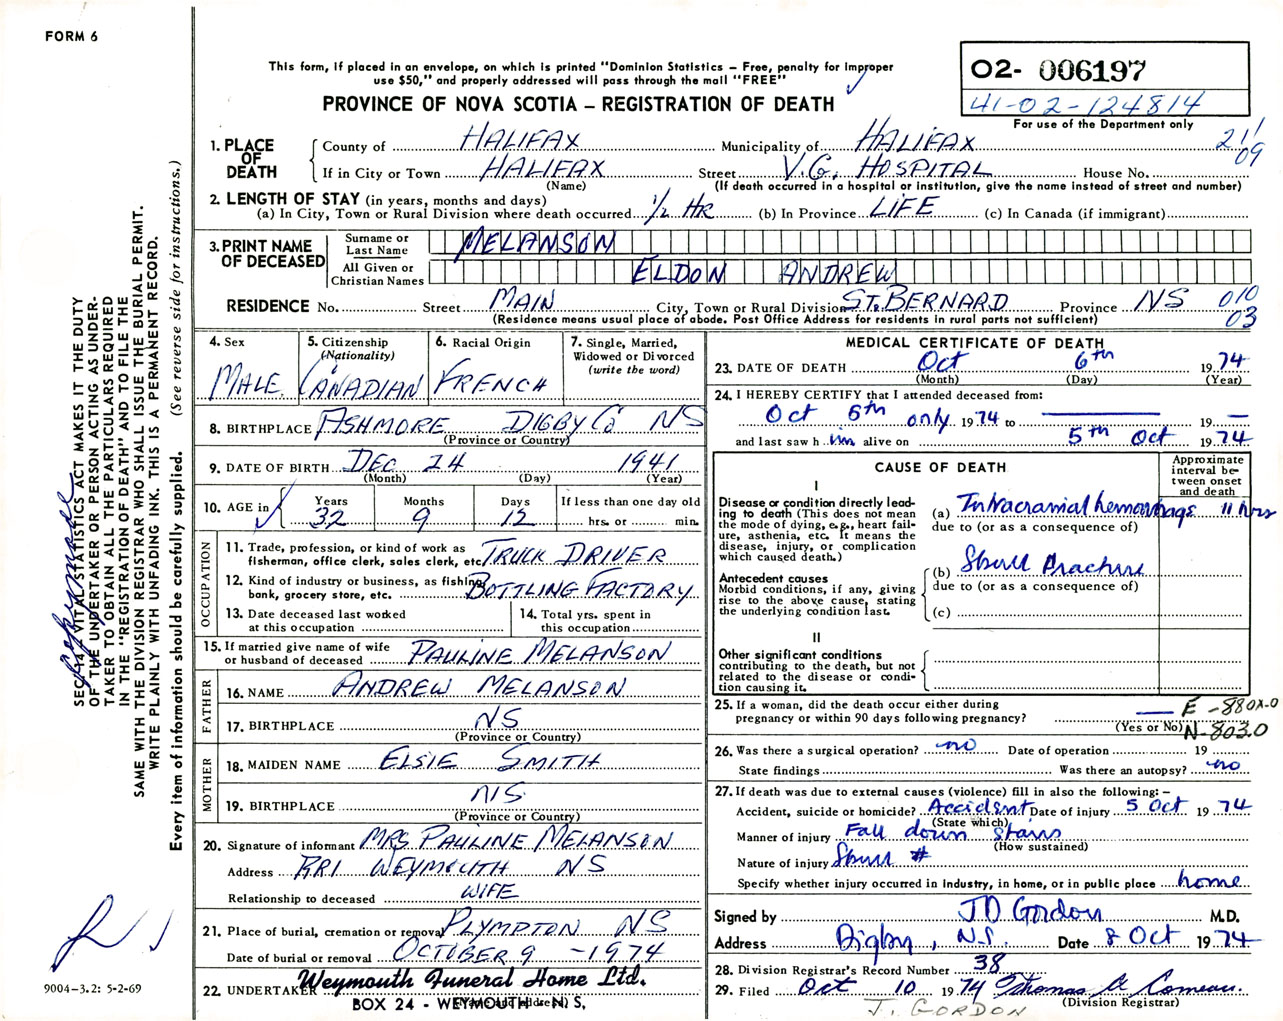 FORM 6
This form, if placed in an envelope, on which is printed "Dominion Statistics – Free, penalty for improper
use $50," and properly addressed will pass through the mail "FREE"
PROVINCE OF NOVA SCOTIA – REGISTRATION OF DEATH
02- 006197
41-02-124814
For use of the Department only
21/
09
1. PLACE OF DEATH
County of HALIFAX Municipality of HALIFAX
If in City or Town HALIFAX Street V.G. HOSPITAL House No.
(Name) (If death occurred in a hospital or institution, give the name instead of street and number)
2. LENGTH OF STAY (in years, months and days)
(a) In City, Town or Rural Division where death occurred 1/2 HR (b) In Province LIFE (c) In Canada (if immigrant)
3. PRINT NAME OF DECEASED
Surname or Last Name MELANSON
All Given or Christian Names ELDON ANDREW
RESIDENCE No. Street MAIN City, Town or Rural Division ST. BERNARD Province NS 010
03
(Residence means usual place of abode. Post Office Address for residents in rural parts not sufficient)
4. Sex MALE
5. Citizenship (Nationality) CANADIAN
6. Racial Origin FRENCH
7. Single, Married, Widowed or Divorced (write the word)
8. BIRTHPLACE ASHMORE DIGBY Co NS
(Province or Country)
9. DATE OF BIRTH DEC 24 1941
(Month) (Day) (Year)
10. AGE in Years 32 Months 9 Days 12 If less than one day old
hrs. or min.
OCCUPATION
11. Trade, profession, or kind of work as
fisherman, office clerk, sales clerk, etc. TRUCK DRIVER
12. Kind of industry or business, as fishing,
bank, grocery store, etc. BOTTLING FACTORY
13. Date deceased last worked
at this occupation
14. Total yrs. spent in
this occupation
15. If married give name of wife
or husband of deceased PAULINE MELANSON
FATHER
16. NAME ANDREW MELANSON
17. BIRTHPLACE NS
(Province or Country)
MOTHER
18. MAIDEN NAME ELSIE SMITH
19. BIRTHPLACE NS
(Province or Country)
20. Signature of informant MRS PAULINE MELANSON
Address RR1 WEYMOUTH NS
Relationship to deceased WIFE
21. Place of burial, cremation or removal PLYMPTON NS
Date of burial or removal OCTOBER 9 - 1974
22. UNDERTAKER Weymouth Funeral Home Ltd.
BOX 24 - WEYMOUTH N. S.
MEDICAL CERTIFICATE OF DEATH
23. DATE OF DEATH Oct 6th 1974
(Month) (Day) (Year)
24. I HEREBY CERTIFY that I attended deceased from:
Oct 6th only 1974 to 19
and last saw him alive on 5th Oct 1974
CAUSE OF DEATH
Approximate interval between onset and death
I
Disease or condition directly lead-
ing to death (This does not mean
the mode of dying, e.g., heart fail-
ure, asthenia, etc. It means the
disease, injury, or complication
which caused death.)
(a) Intracranial hemorrhage 11 hrs
due to (or as a consequence of)
Antecedent causes
Morbid conditions, if any, giving
rise to the above cause, stating
the underlying condition last.
(b) Skull fracture
due to (or as a consequence of)
(c)
II
Other significant conditions
contributing to the death, but not
related to the disease or condi-
tion causing it.
25. If a woman, did the death occur either during
pregnancy or within 90 days following pregnancy?
(Yes or No)
E -880X.0
N-803.0
26. Was there a surgical operation? no Date of operation 19
State findings Was there an autopsy? no
27. If death was due to external causes (violence) fill in also the following: –
Accident, suicide or homicide? Accident Date of injury 5 Oct 1974
(State which)
Manner of injury Fall down stairs
(How sustained)
Nature of injury Skull #
Specify whether injury occurred in industry, in home, or in public place home
Signed by JD Gordon M.D.
Address Digby, N.S. Date 8 Oct 1974
28. Division Registrar's Record Number 38
29. Filed Oct 10 1974 Thomas A Comeau
(Division Registrar)
J. GORDON
SEC. 14 VITAL STATISTICS ACT MAKES IT THE DUTY
OF THE UNDERTAKER OR PERSON ACTING AS UNDER-
TAKER TO OBTAIN ALL THE PARTICULARS REQUIRED
IN THE "REGISTRATION OF DEATH" AND TO FILE THE
SAME WITH THE DIVISION REGISTRAR WHO SHALL ISSUE THE BURIAL PERMIT.
WRITE PLAINLY WITH UNFADING INK. THIS IS A PERMANENT RECORD.
Every item of information should be carefully supplied. (See reverse side for instructions.)
9004-3.2: 5-2-69